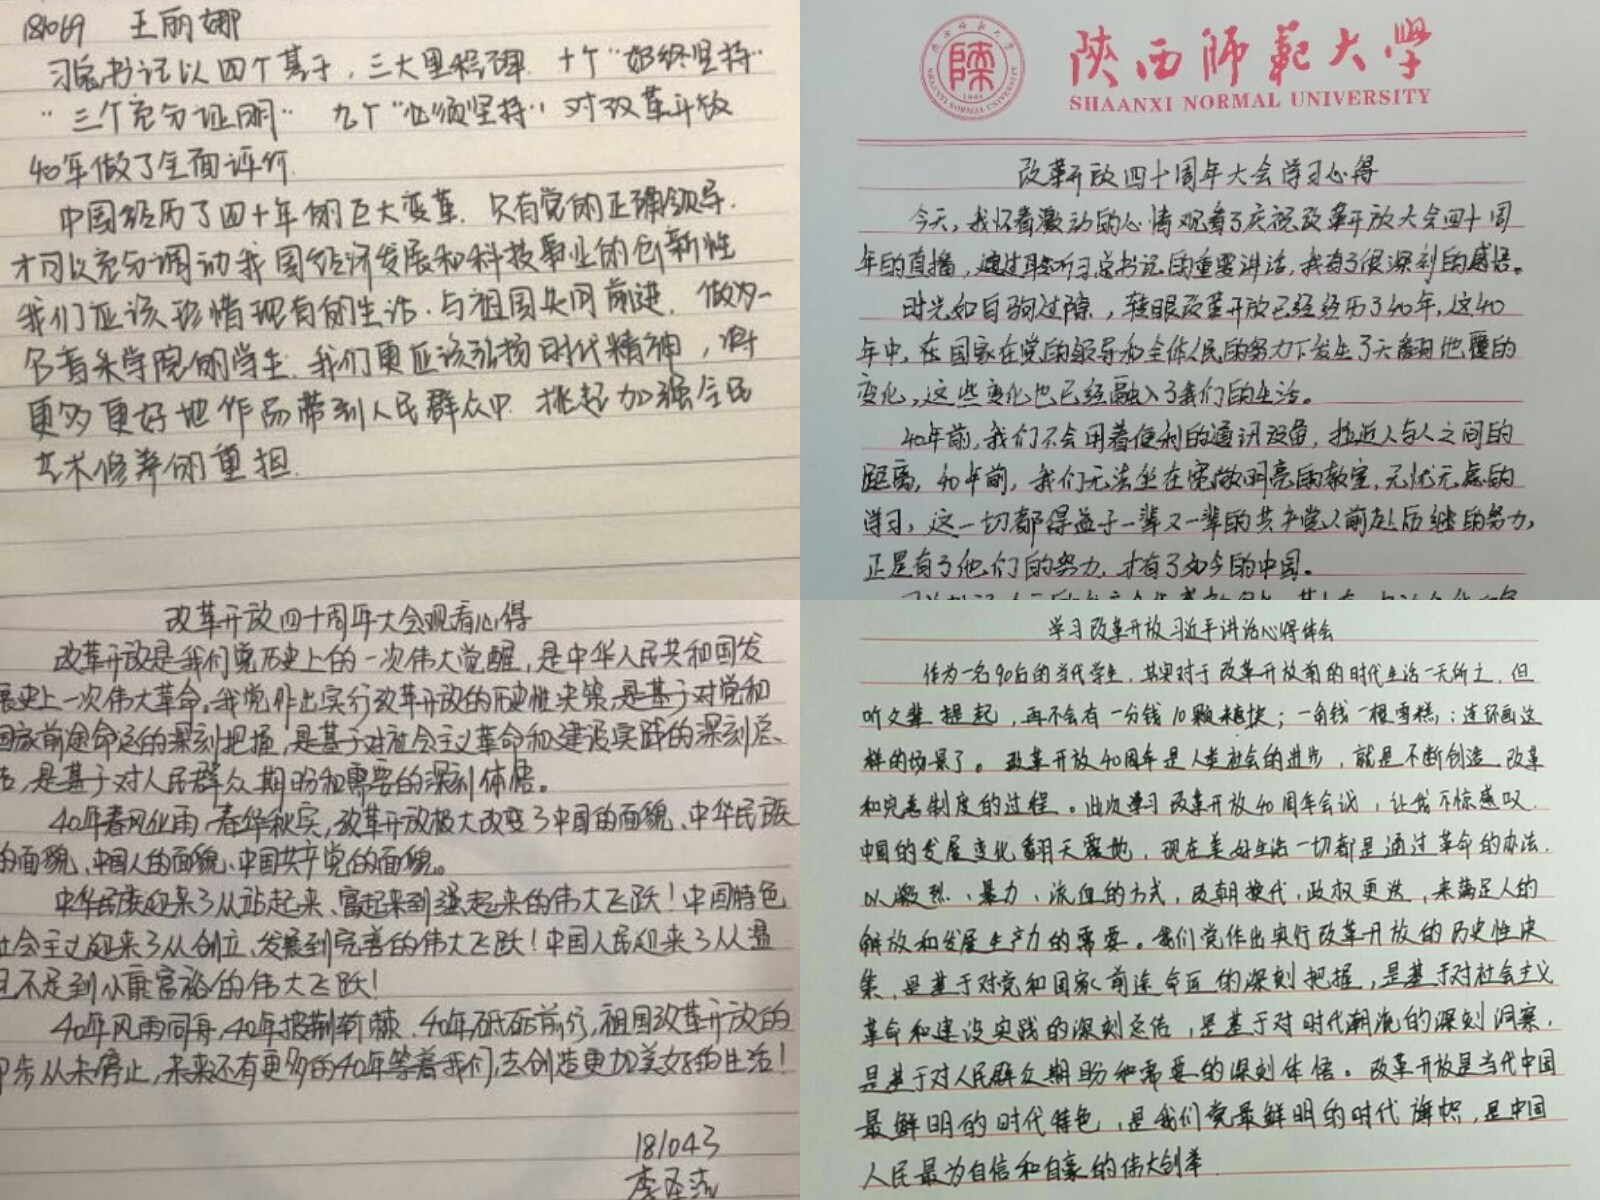 181069 王丽娜
习总书记以四个基于,三大里程碑.十个"始终坚持"
"三个充分证明" 九个"必须坚持",对改革开放
40年做了全面评价.
中国经历了四十年的巨大变革.只有党的正确领导.
才可以充分调动我国经济发展和科技事业的创新性
我们应该珍惜现有的生活.与祖国共同前进.做为一
名音乐学院的学生.我们更应该弘扬时代精神,将
更多更好地作品带到人民群众中.挑起加强全民
艺术修养的重担.
陕西师范大学
SHAANXI NORMAL UNIVERSITY
改革开放四十周年大会学习心得
今天,我怀着激动的心情观看了庆祝改革开放大会四十周
年的直播,通过聆听习总书记的重要讲话,我有了很深刻的感悟。
时光如白驹过隙,转眼改革开放已经经历了40年,这40
年中,在国家在党的领导和全体人民的努力下发生了天翻地覆的
变化,这些变化也已经融入了我们的生活。
40年前,我们不会用着便利的通讯设备,拉近人与人之间的
距离,40年前,我们无法坐在宽敞明亮的教室,无忧无虑的
学习,这一切都得益于一辈又一辈的共产党人前赴后继的努力,
正是有了他们的努力,才有了如今的中国。
改革开放四十周年大会观看心得
改革开放是我们党历史上的一次伟大觉醒,是中华人民共和国发
展史上一次伟大革命。我党作出实行改革开放的历史性决策,是基于对党和
国家前途命运的深刻把握,是基于对社会主义革命和建设实践的深刻总
结,是基于对人民群众期盼和需要的深刻体悟。
40年春风化雨、春华秋实,改革开放极大改变了中国的面貌、中华民族
的面貌、中国人的面貌、中国共产党的面貌。
中华民族迎来了从站起来、富起来到强起来的伟大飞跃!中国特色
社会主义迎来了从创立、发展到完善的伟大飞跃!中国人民迎来了从温
饱不足到小康富裕的伟大飞跃!
40年风雨同舟,40年披荆斩棘,40年砥砺前行,祖国改革开放的
脚步从未停止,未来还有更多的40年等着我们,去创造更加美好的生活!
181043
李
学习改革开放习近平讲话心得体会
作为一名90后的当代学生,其实对于改革开放前的时代生活一无所知,但
听父辈提起,再不会有一分钱10颗糖块;一角钱一根雪糕;连环画这
样的场景了。改革开放40周年是人类社会的进步,就是不断创造、改革
和完善制度的过程。此次学习改革开放40周年会议,让我不惊感叹.
中国的发展变化翻天覆地,现在美好生活一切都是通过革命的办法.
以激烈、暴力、流血的方式,改朝换代,政权更迭,来满足人的
解放和发展生产力的需要。我们党作出实行改革开放的历史性决
策,是基于对党和国家前途命运的深刻把握,是基于对社会主义
革命和建设实践的深刻总结,是基于对时代潮流的深刻洞察,
是基于对人民群众期盼和需要的深刻体悟。改革开放是当代中国
最鲜明的时代特色,是我们党最鲜明的时代旗帜,是中国
人民最为自信和自豪的伟大创举.